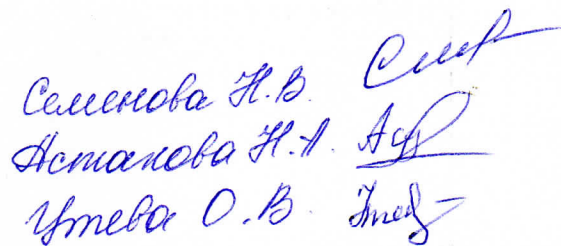 Семенова Н.В.
Астахова Н.А.
Утева О.В.